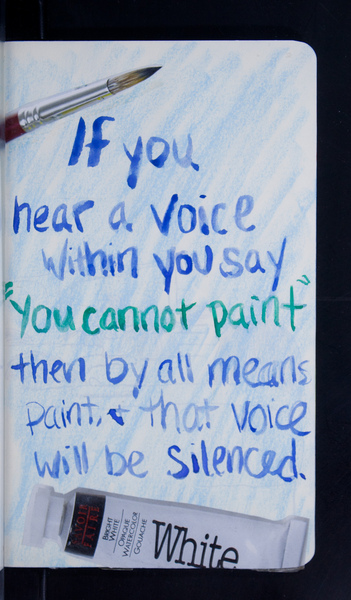 If you
hear a voice
within you say
"you cannot paint"
then by all means
paint, & that voice
will be silenced.
SAVOIR
FAIRE
BRIGHT
WHITE
OPAQUE
WATERCOLOR
GOUACHE
White